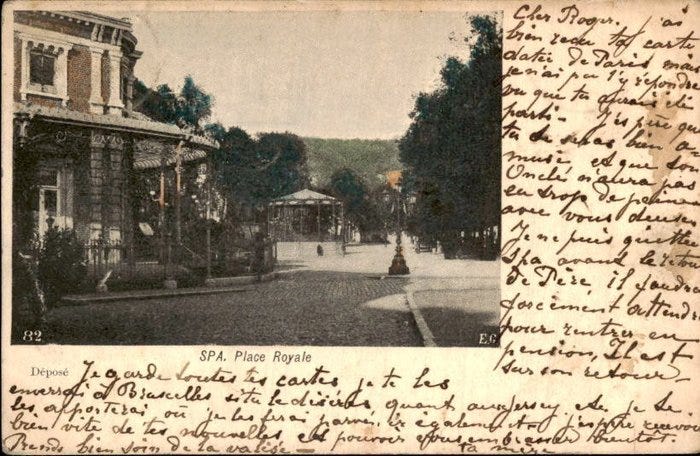 Cher Roger. j'ai
bien reçu ta carte
datée de Paris mais
je n'ai pu t'y répondre
vu que tu aurais été
parti. J'espère que
tu te seras bien a-
musé et que ton
Oncle n'aura pas
eu trop de peine
avec vous deux.
Je ne puis quitter
Spa avant le retour
de Père, il faudra
forcément attendre
pour rentrer en
pension, Il est
sur son retour.
82
E.G
SPA. Place Royale
Déposé
Je garde toutes tes cartes je te les
enverrai à Bruxelles si tu le désires quant au Jersey etc. je te
les apporterai ou je les ferai parvenir également. J'espère recevoir
bien vite de tes nouvelles et pouvoir vous embrasser bientôt.
Prends bien soin de la valise — ta mère